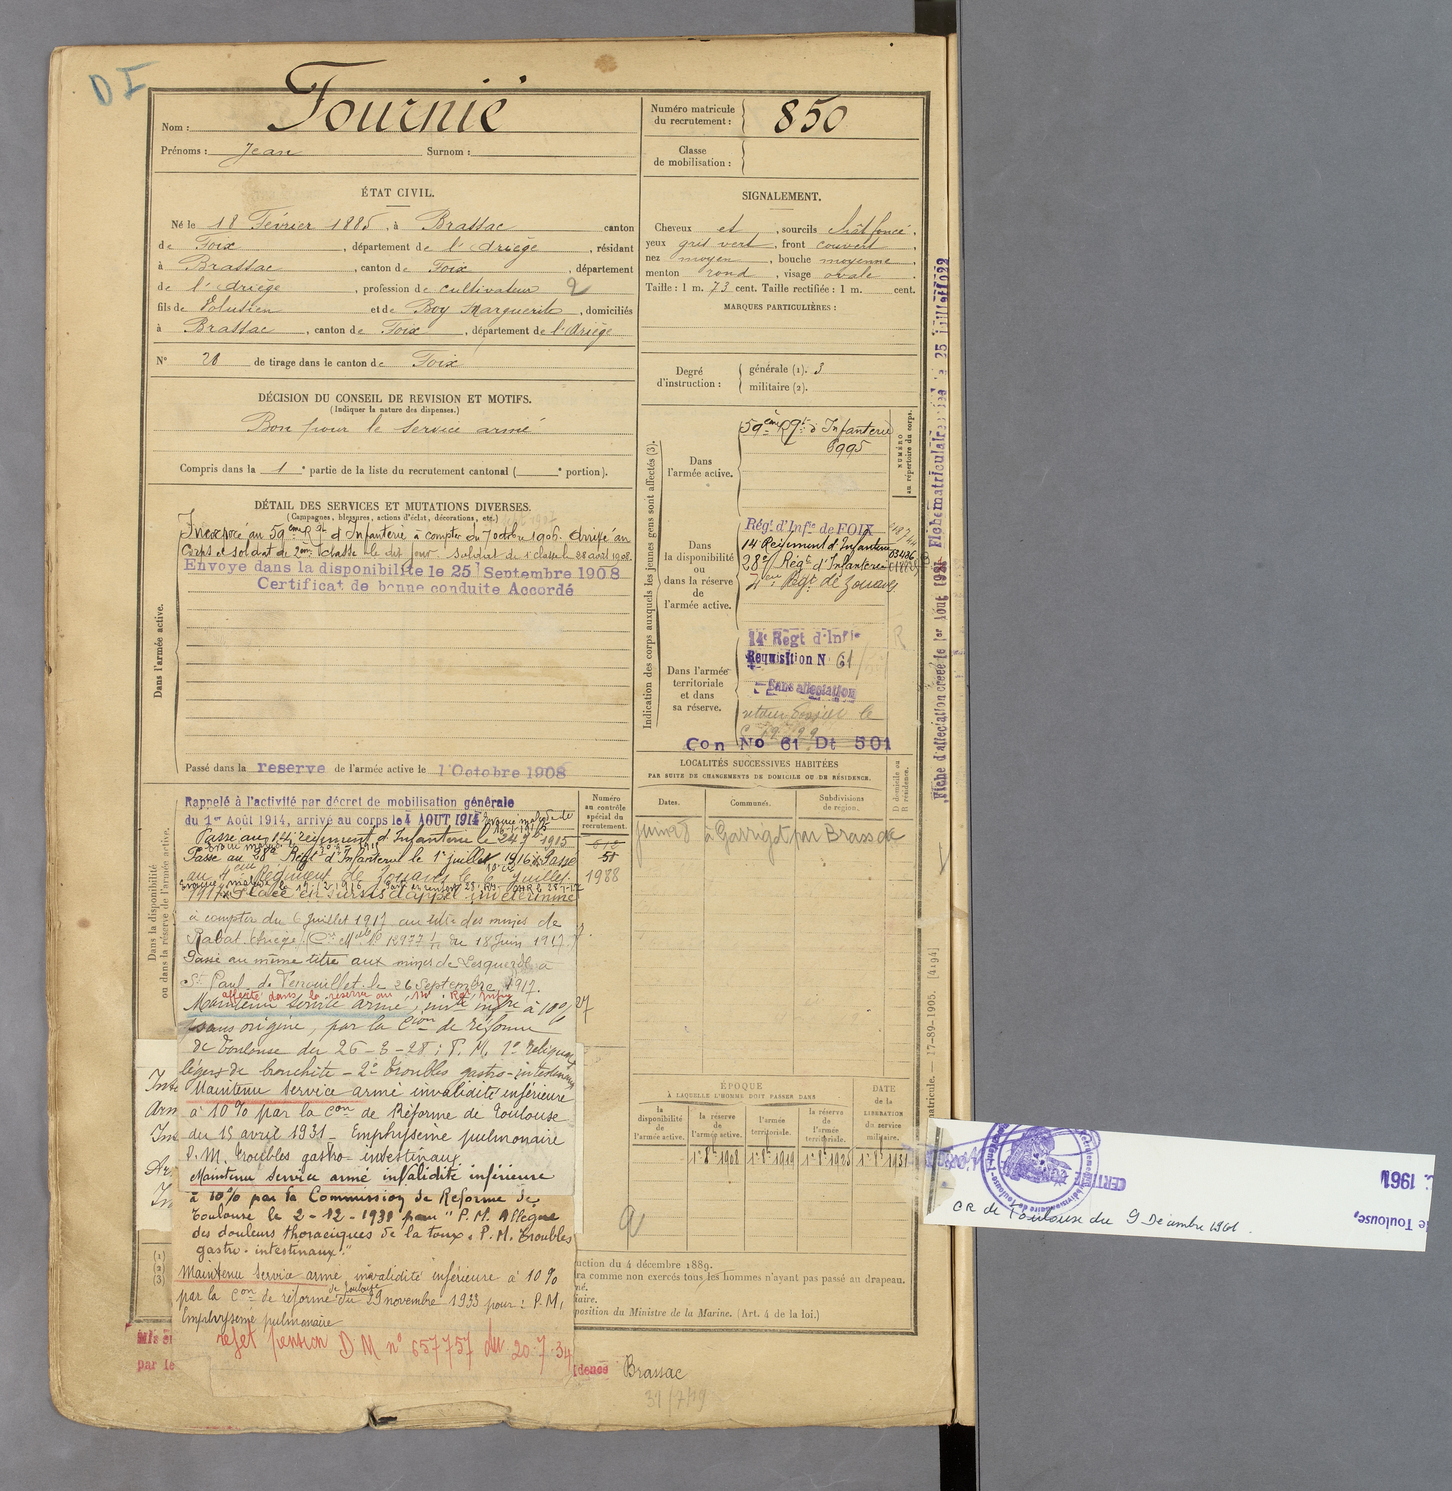 D I
Nom : Fournié
Prénoms : Jean Surnom :
Numéro matricule du recrutement : 850
Classe de mobilisation :
ÉTAT CIVIL.
Né le 18 Février 1885, à Brassac canton
de Foix, département de l'Ariège, résidant
à Brassac, canton de Foix, département
de l'Ariège, profession de cultivateur 2
fils de Volusien et de Boy Marguerite, domiciliés
à Brassac, canton de Foix, département de l'Ariège
N° 28 de tirage dans le canton de Foix
SIGNALEMENT.
Cheveux et, sourcils chât foncé.
yeux gris vert, front couvert,
nez moyen, bouche moyenne,
menton rond, visage ovale.
Taille : 1 m. 73 cent. Taille rectifiée : 1 m. cent.
MARQUES PARTICULIÈRES :
Degré d'instruction : générale (1). 3
militaire (2).
DÉCISION DU CONSEIL DE REVISION ET MOTIFS.
(Indiquer la nature des dispenses.)
Bon pour le service armé
Compris dans la 1e partie de la liste du recrutement cantonal ( e portion).
DÉTAIL DES SERVICES ET MUTATIONS DIVERSES.
(Campagnes, blessures, actions d'éclat, décorations, etc.)
Dans l'armée active.
Incorporé au 59ème Rgt d'Infanterie à compter du 7 octobre 1906. Arrivé au
Corps et soldat de 2ème classe le dit jour. Soldat de 1e classe le 28 avril 1908.
Envoyé dans la disponibilité le 25 Septembre 1908
Certificat de bonne conduite Accordé
Passé dans la reserve de l'armée active le 1 Octobre 1908
Indication des corps auxquels les jeunes gens sont affectés (3).
NUMÉRO au répertoire du corps.
Dans l'armée active.
59ème Rgt d'Infanterie
6995
Dans la disponibilité ou dans la réserve de l'armée active.
Rég. d'Infie de FOIX
14 Régiment d'Infanterie
28e Régt d'Infanterie
4eme Regt de Zouaves
Dans l'armée territoriale et dans sa réserve.
14e Regt d'Infie
Requisition N 61
Sans affectation
Con No 61 Dt 501
LOCALITÉS SUCCESSIVES HABITÉES
PAR SUITE DE CHANGEMENTS DE DOMICILE OU DE RÉSIDENCE.
D domicile ou R résidence.
Dates. Communes. Subdivisions de région.
à Garrigot par Brassac
Dans la disponibilité ou dans la réserve de l'armée active.
Numéro au contrôle spécial du recrutement.
51
1988
Rappelé à l'activité par décret de mobilisation générale
du 1er Août 1914, arrivé au corps le 4 AOUT 1914
Passé au 14e régiment d'Infanterie le 24 7bre 1915
Passé au 38e Regt d'Infanterie le 1er juillet 1916. Passé
au 4eme Régiment de Zouaves le 6 Juillet
1917. Placé en sursis d'appel indéterminé
à compter du 6 Juillet 1917 au titre des mines de
Rabat Ariège du 18 Juin 1917.
Passé au même titre aux mines de Lesquerde à
St Paul de Fenouillet le 26 Septembre 1917.
affecté dans la réserve au 14 Rgt Infie
Maintenu service armé, invté infre à 10%
sans origine, par la Cion de réforme
de Toulouse du 26-3-28 : P. M. 1° reliquats
légers de bronchite - 2° troubles gastro-intestinaux
Maintenu Service armé invalidité inférieure
à 10% par la Con de Réforme de Toulouse
du 15 avril 1931 - Emphysème pulmonaire
P. M. Troubles gastro-intestinaux
Maintenu Service armé invalidité inférieure
à 10% par la Commission de Réforme de
Toulouse le 2-12-1931 pour "P. M. Allègue
des douleurs thoraciques de la toux. P. M. Troubles
gastro-intestinaux."
Maintenu Service armé invalidité inférieure à 10%
par la Con de réforme de Toulouse du 29 novembre 1933 pour : P. M.
Emphysème pulmonaire
rejet pension D M n° 657757 du 20.7.34
ÉPOQUE
À LAQUELLE L'HOMME DOIT PASSER DANS
la disponibilité de l'armée active.
la réserve de l'armée active.
l'armée territoriale.
la réserve de l'armée territoriale.
DATE de la LIBÉRATION du service militaire.
1r 8e 1908 1r 8e 1919 1r 8e 1925 1r 8e 1931
(1)
(2)
(3)
uction du 4 décembre 1889.
ra comme non exercés tous les hommes n'ayant pas passé au drapeau.
né.
iaire.
position du Ministre de la Marine. (Art. 4 de la loi.)
par le
idence Brassac
31/7/19
matricule. — 17-89-1905. [4194]
CERTIFIÉ
1961
de Toulouse,
CR de Toulouse du 9 Décembre 1961.